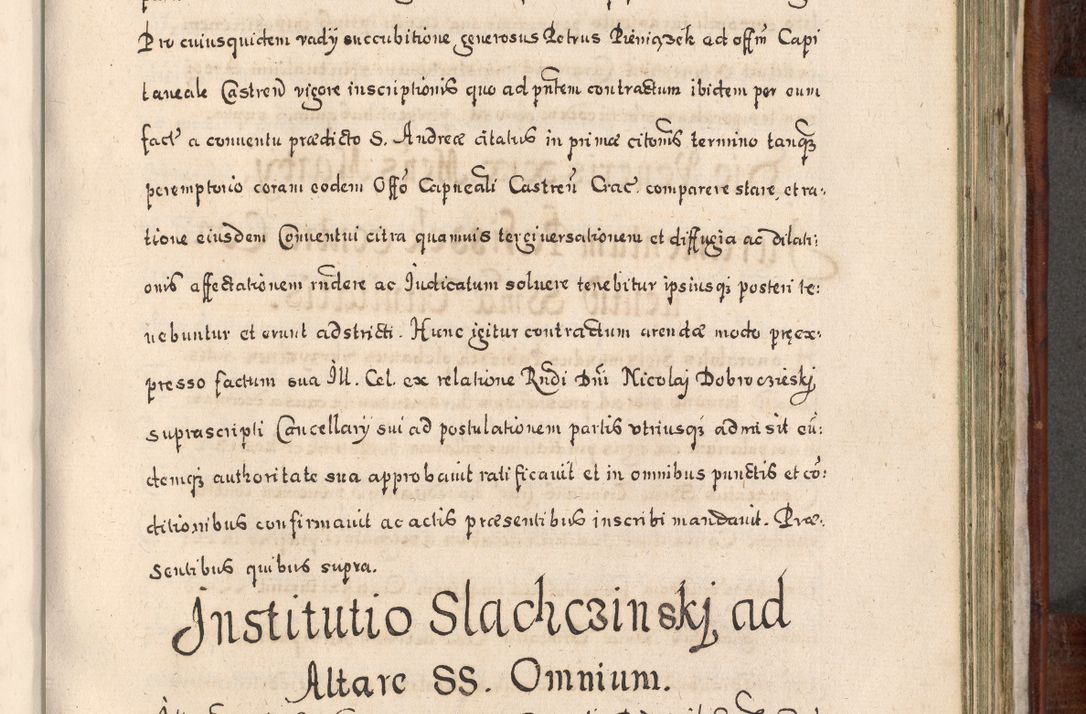 Pro cuiusquidem vadÿ succubitione generosus Petrus Pieniązek ad offm̃ Capi
taneale Castreñ vigore inscriptionis quo ad pñtem contractum ibidem per eum
fact̃ a conuentu prædicto S. Andreæ citatus in primæ citõnis termino tanq̃
peremptorio coram eodem Offõ Capneãli Castreñ Crac. comparere stare, et ra:
tione eiusdem Conuentui citra quamuis tergiuersationem et diffugia ac dilati:
onis affectationem rñdere ac Judicatum soluere tenebitur ipsiusq; posteri te:
nebuntur et erunt adstricti. Hunc igitur contractum arendæ modo pręex:
presso factum sua Ill. Cel. ex relatione Rñdi Dñi Nicolaj Dobroczieskj
suprascripti Cancellarÿ sui ad postulationem partis vtriusq; admisit eũ:
demq; authoritate sua approbauit ratificauit et in omnibus punctis et cõ:
ditionibus confirmauit ac actis præsentibus inscribi mandauit. Præ:
sentibus quibus supra.
Institutio Slachczinskj ad
Altare SS. Omnium.